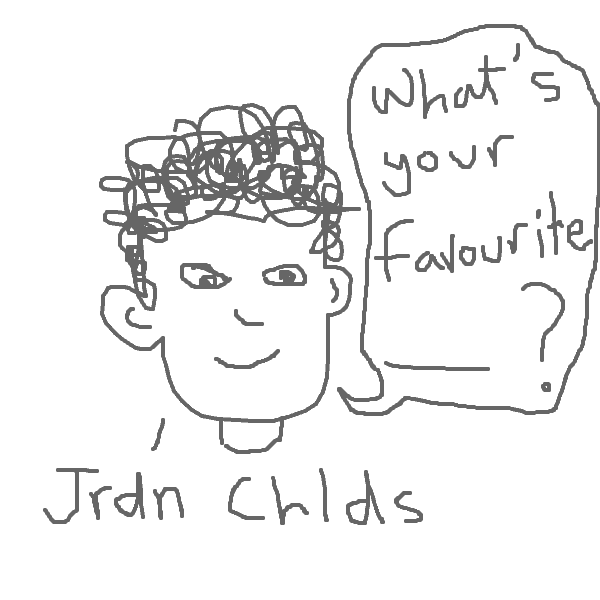 What's
your
favourite
____?
Jrdn Chlds